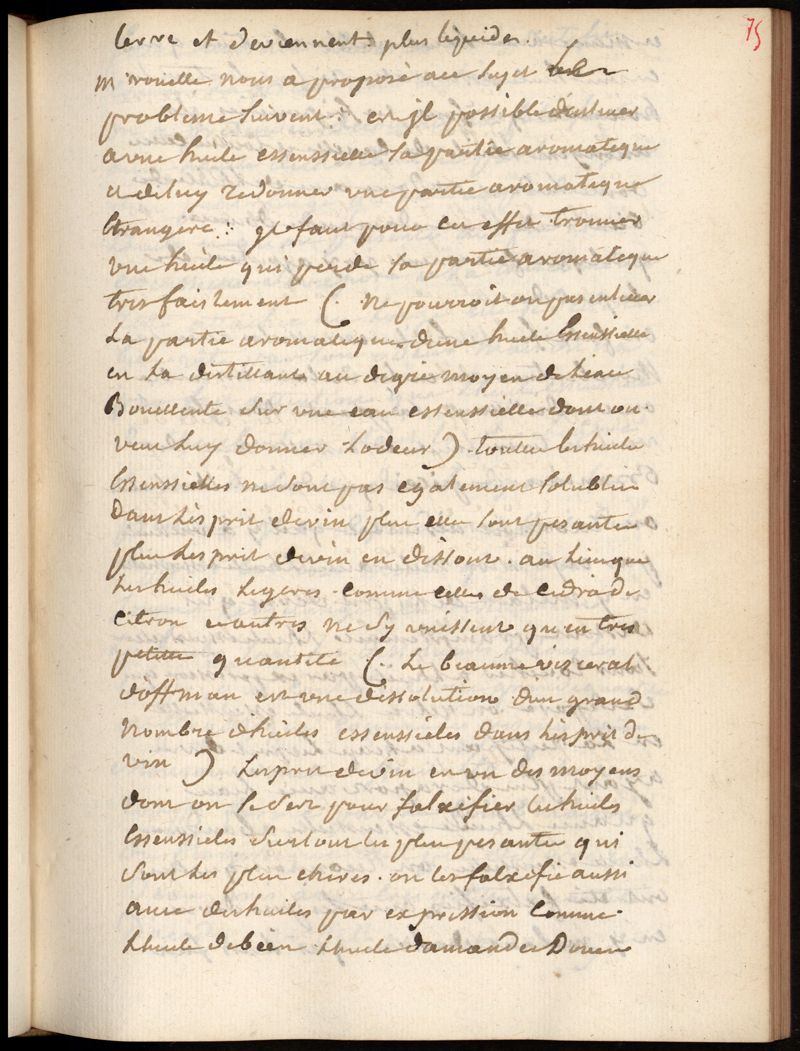 75
terre et deviennent plus liquides.
M rouelle nous a proposé au sujet le
probleme suivent : est jl possible d'enlever
a une huile essenssielle la partie aromatique
et de luy redonner une partie aromatique
Etrangere : jl faut pour cet effet trouver
une huile qui perde la partie aromatique
tres facilement (. ne pourroit on pas enlever
La partie aromatique dune huile Essenssielle
en La distillant au degré moyen de Leau
Bouillente sur une eau essenssielle dont on
veut Luy donner Lodeur ) toutes les huiles
Essenssielles ne sont pas egalement solubles
Dans Lesprit de vin plus elles sont pesantes
plus Lesprit de vin en dissout. au Lieu que
Les huiles Legeres comme celles de cedra de
Citron et autres ne sy unissent qu'en tres
petite quantité (. Le beaume visceral
doffman est une dissolution d'un grand
nombre d'huiles essenssieles dans Lesprit de
vin ) Lesprit de vin est un des moyens
dont on se sert pour falxifier les huiles
Essenssieles surtout les plus pesantes qui
sont Les plus cheres. on les falxifie aussi
avec des huiles par expression Comme
Lhuile de been Lhuile damandes Douces